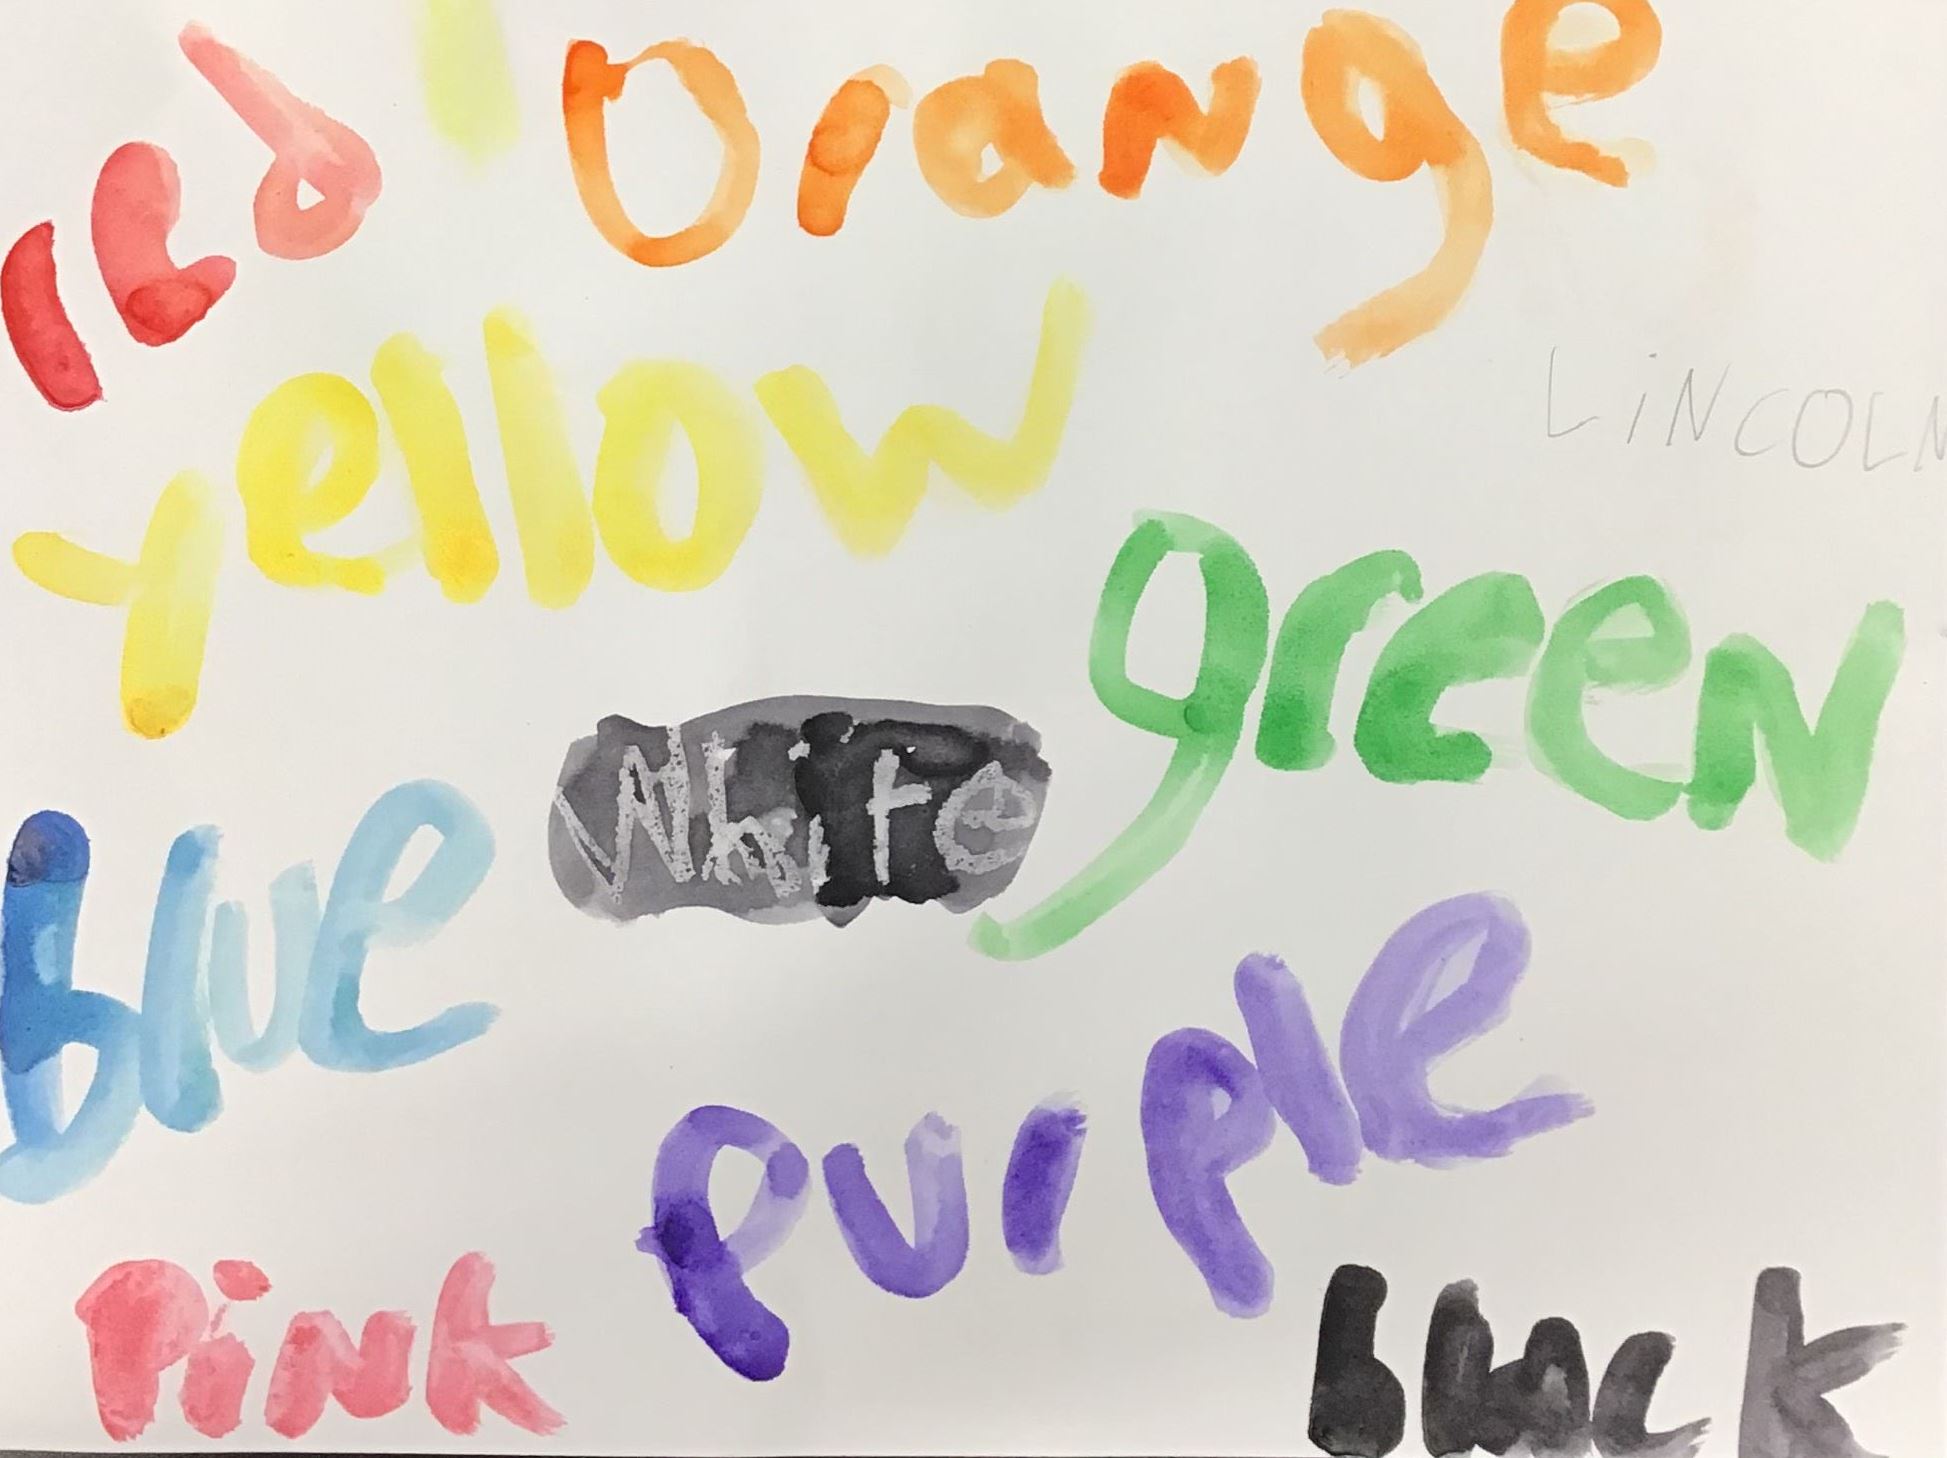 red orange
yellow
LiNCOLN
green
White
blue
purple
Pink
black